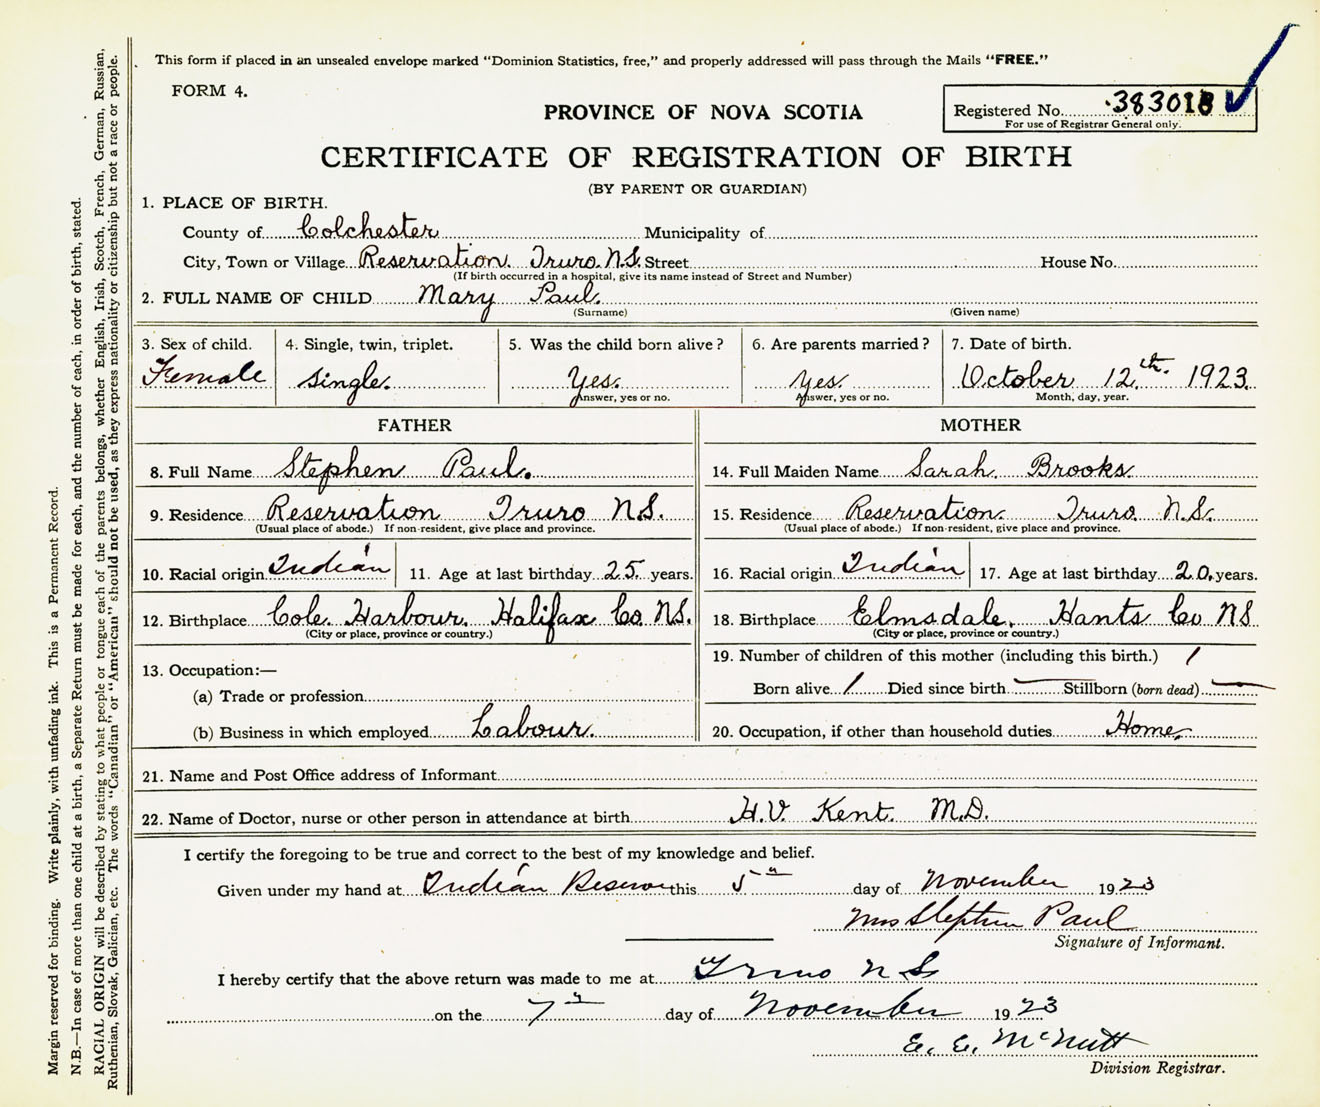 This form if placed in an unsealed envelope marked "Dominion Statistics, free," and properly addressed will pass through the Mails "FREE."
FORM 4.
PROVINCE OF NOVA SCOTIA
Registered No. 383018
For use of Registrar General only.
CERTIFICATE OF REGISTRATION OF BIRTH
(BY PARENT OR GUARDIAN)
1. PLACE OF BIRTH.
County of Colchester Municipality of
City, Town or Village Reservation Truro N.S. Street House No.
(If birth occurred in a hospital, give its name instead of Street and Number)
2. FULL NAME OF CHILD Mary Paul.
(Surname) (Given name)
3. Sex of child. 4. Single, twin, triplet. 5. Was the child born alive? 6. Are parents married? 7. Date of birth.
Female single. Yes. Yes. October 12th. 1923.
Answer, yes or no. Answer, yes or no. Month, day, year.
FATHER MOTHER
8. Full Name Stephen Paul. 14. Full Maiden Name Sarah. Brooks.
9. Residence Reservation Truro N.S. 15. Residence Reservation. Truro. N.S.
(Usual place of abode.) If non-resident, give place and province. (Usual place of abode.) If non-resident, give place and province.
10. Racial origin Indian 11. Age at last birthday 25. years. 16. Racial origin Indian 17. Age at last birthday 20. years.
12. Birthplace Cole Harbour. Halifax Co. N.S. 18. Birthplace Elmsdale. Hants Co N.S
(City or place, province or country.) (City or place, province or country.)
13. Occupation:— 19. Number of children of this mother (including this birth.) 1
(a) Trade or profession Born alive 1 Died since birth — Stillborn (born dead) —
(b) Business in which employed Labour. 20. Occupation, if other than household duties Home.
21. Name and Post Office address of Informant
22. Name of Doctor, nurse or other person in attendance at birth H.V. Kent. M.D.
I certify the foregoing to be true and correct to the best of my knowledge and belief.
Given under my hand at Indian Reserve this 5th day of November 1923
Mrs Stephen Paul
Signature of Informant.
I hereby certify that the above return was made to me at Truro N S
on the 7th day of November 1923
E. E. McNutt
Division Registrar.
Margin reserved for binding. Write plainly, with unfading ink. This is a Permanent Record.
N.B.—In case of more than one child at a birth, a Separate Return must be made for each, and the number of each, in order of birth, stated.
RACIAL ORIGIN will be described by stating to what people or tongue each of the parents belongs, whether English, Irish, Scotch, French, German, Russian,
Ruthenian, Slovak, Galician, etc. The words "Canadian" or "American" should not be used, as they express nationality or citizenship but not a race or people.